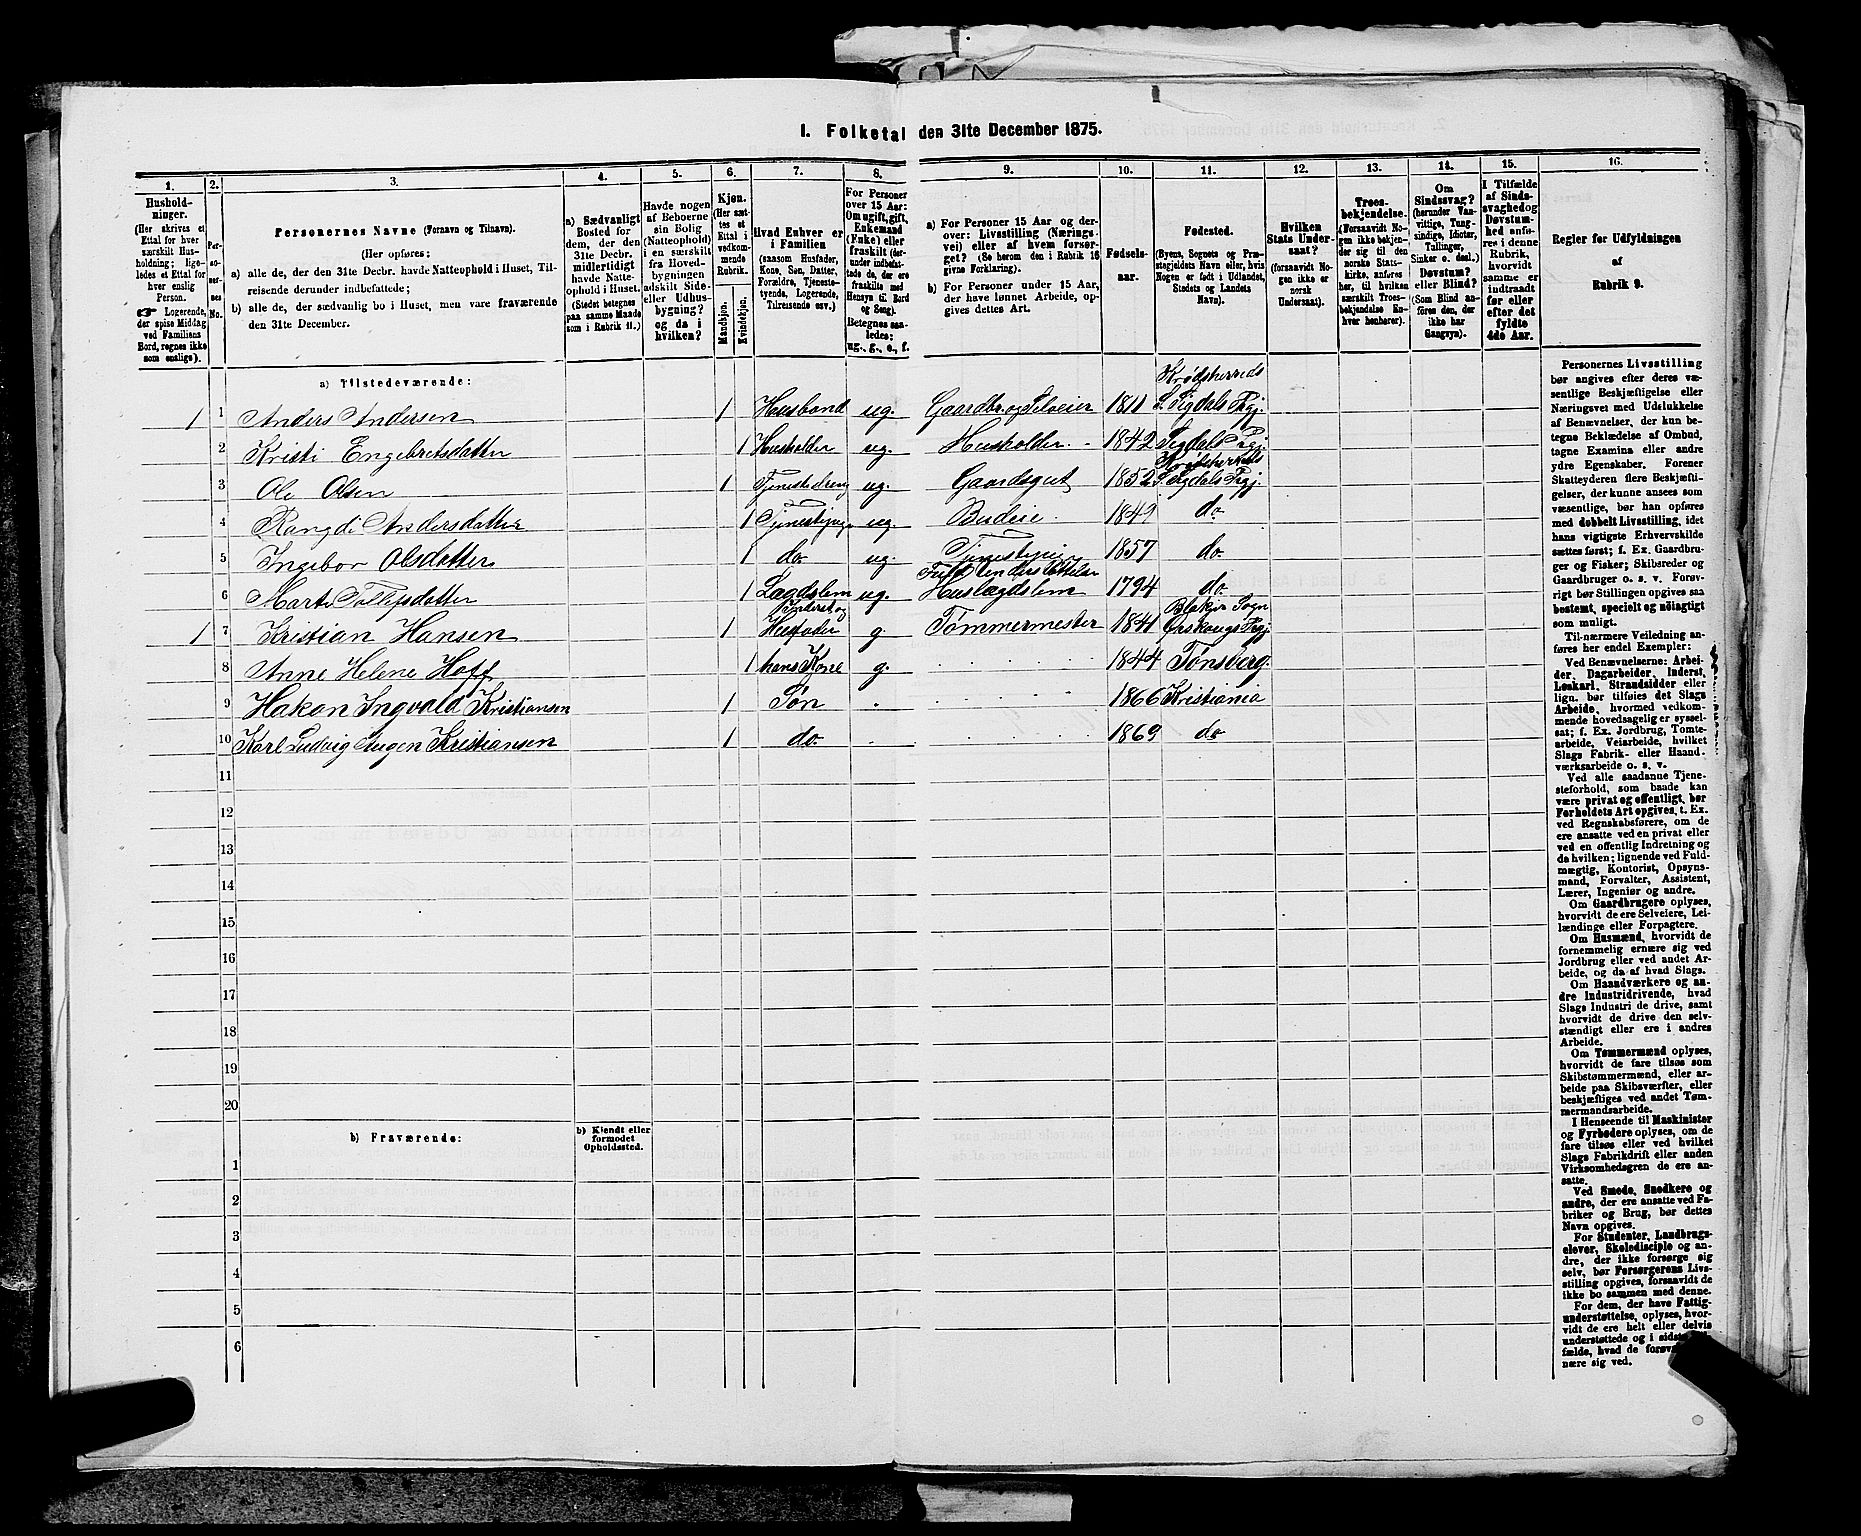 1. Folketal den 31te December 1875.
1. 2. 3. 4. 5. 6. 7. 8. 9. 10. 11. 12. 13. 14. 15. 16.
Hushold-
ninger.
(Her skrives et
Ettal for hver
særskilt Hus-
holdning; lige-
ledes et Ettal for
hver enslig
Person.
Logerende,
der spise Middag
ved Familiens
Bord, regnes ikke
som enslige).
Per-
so-
ner-
nes
No.
Personernes Navne (Fornavn og Tilnavn).
(Her opføres:
a) alle de, der den 31te Decbr. havde Natteophold i Huset, Til-
reisende derunder indbefattede;
b) alle de, der sædvanlig bo i Huset, men vare fraværende
den 31te December.
a) Sædvanligt
Bosted for
dem, der den
31te Decbr.
midlertidigt
havde Natte-
ophold i Huset.
(Stedet betegnes
paa samme Maade
som i Rubrik 11.)
Havde nogen
af Beboerne
sin Bolig
(Natteophold)
i en særskilt
fra Hoved-
bygningen
adskilt Side-
eller Udhus-
bygning?
og da i
hvilken?
Kjøn.
(Her sæt-
tes et
Ettal i
vedkom-
mende
Rubrik.
Mandkjøn.
Kvindekjøn.
Hvad Enhver er
i Familien
(saasom Husfader,
Kone, Søn, Datter,
Forældre, Tjeneste-
tyende, Logerende,
Tilreisende osv.)
For Personer
over 15 Aar:
Om ugift, gift,
Enkemand
(Enke) eller
fraskilt (der-
under indbefat-
tede de, der ere
fraskilte med
Hensyn til Bord
og Seng).
Betegnes saa-
ledes:
ug., g., e., f.
a) For Personer 15 Aar og der-
over: Livsstilling (Nærings-
vei) eller af hvem forsør-
get? (Se herom den i Rubrik 16
givne Forklaring).
b) For Personer under 15 Aar,
der have lønnet Arbeide, op-
gives dettes Art.
Fødsels-
aar.
Fødested.
(Byens, Sognets og Præ-
stegjeldets Navn eller, hvis
Nogen er født i Udlandet,
Stedets og Landets
Navn).
Hvilken
Stats Under-
saat?
(forsaavidt No-
gen ikke er
norsk
Undersaat).
Troes-
bekjendelse.
(Forsaavidt No-
gen ikke bekjen-
der sig til den
norske Stats-
kirke, anføres
her, til hvilken
særskilt Troes-
bekjendelse En-
hver henhører).
Om
Sindssvag?
(herunder Van-
vittige, Tung-
sindige, Idioter,
Tullinger,
Sinker o. desl.)
Døvstum?
eller Blind?
(Som Blind an-
føres den, der
ikke har
Gangsyn).
I Tilfælde
af Sinds-
svaghed og
Døvstum-
hed anfø-
res i denne
Rubrik,
hvorvidt
samme er
indtraadt
før eller
efter det
fyldte
4de Aar.
Regler for Udfyldningen
af
Rubrik 9.
a) Tilstedeværende:
Krødsherreds
1 1 Anders Andersen 1 Husbond ug. Gaardbr. og Selveier 1811 S. Sigdals Prgj.
2 Kristi Engebretsdatter 1 Husholder ug. Husholder 1842 Sigdals Prgj.
Krødsherreds
3 Ole Olsen 1 Tjenestedreng ug. Gaardsgut 1852 S. Sigdals Prgj.
4 Rangdi Andersdatter 1 Tjenestpige ug. Budeie 1849 do
5 Ingebor Olsdatter 1 do. ug. Tjenestpige 1857 do.
6 Marte Tollefsdatter 1 Lægdslem ug. Huslægdslem 1794 do.
Inderst og Blakjer Sogn
1 7 Kristian Hansen 1 Husfader g. Tømmermester 1841 Urskougs Prgj
8 Anne Helene Hoff 1 hans Kone g. 1844 Tønsberg.
9 Hakon Ingvald Kristiansen 1 Søn 1866 Kristiania
10 Karl Ludvig Augen Kristiansen 1 do. 1869 do
11
12
13
14
15
16
17
18
19
20
b) Fraværende:
b) Kjendt eller
formodet
Opholdssted.
1
2
3
4
5
6
Personernes Livsstilling
bør angives efter deres væ-
sentlige Beskjæftigelse eller
Næringsvei med Udelukkelse
af Benævnelser, der kun be-
tegne Beklædelse af Ombud,
tagne Examina eller andre
ydre Egenskaber. Forener
Skatteyderen flere Beskjæfti-
gelser, der kunne ansees som
væsentlige, bør han opføres
med dobbelt Livsstilling, idet
hans vigtigste Erhvervskilde
sættes først; f. Ex. Gaardbru-
ger og Fisker; Skibsreder og
Gaardbruger o. s. v. Forøv-
rigt bør Stillingen opgives saa
bestemt, specielt og nøiagtigt
som muligt.
Til nærmere Veiledning an-
føres her endel Exempler:
Ved Benævnelserne: Arbei-
der, Dagarbeider, Inderst,
Løskarl, Strandsidder eller
lign. bør tilføies det Slags
Arbeide, hvormed vedkom-
mende hovedsagelig er syssel-
sat; f. Ex. Jordbrug, Tomte-
arbeide, Veiarbeide, hvilket
Slags Fabrik- eller Haand-
værksarbeide o. s. v.
Ved alle saadanne Tjene-
steforhold, som baade kan
være privat og offentligt, bør
Forholdets Art opgives, t. Ex.
ved Regnskabsførere, om de
ere ansatte ved en privat eller
ved en offentlig Indretning og
da hvilken; lignende ved Fuld-
mægtig, Kontorist, Opsyns-
mand, Forvalter, Assistent,
Lærer, Ingeniør og andre.
Om Gaardbrugere oplyses,
hvorvidt de ere Selveiere, Lei-
lændinge eller Forpagtere.
Om Husmænd, hvorvidt de
fornemmelig ernære sig ved
Jordbrug eller ved andet Ar-
beide, og da af hvad Slags.
Om Haandværkere og an-
dre Industridrivende, hvad
Slags Industri de drive, samt
hvorvidt de drive den selv-
stændigt eller ere i andres
Arbeide.
Om Tømmermænd oplyses,
hvorvidt de fare tilsøs som
Skibstømmermænd, eller ar-
beide paa Skibsværfter, eller
beskjæftiges ved andet Tøm-
mermandsarbeide.
I Henseende til Maskinister
og Fyrbødere oplyses, om de
fare tilsøs eller ved hvilket
Slags Fabrikdrift eller anden
Virksomhedsgren de ere an-
satte.
Ved Smede, Snedkere og
andre, der ere ansatte ved Fa-
briker og Brug, bør dettes
Navn opgives.
For Studenter, Landbrugs-
elever, Skoledisciple og an-
dre, der ikke forsørge sig
selv, bør Forsørgerens Livs-
stilling opgives, forsaavidt de
ikke bo sammen med denne.
For dem, der have Fattig-
understøttelse, oplyses, hvor-
vidt de ere helt eller delvis
understøttede og i sidste
fælde, hvad de forøv
nære sig ved.